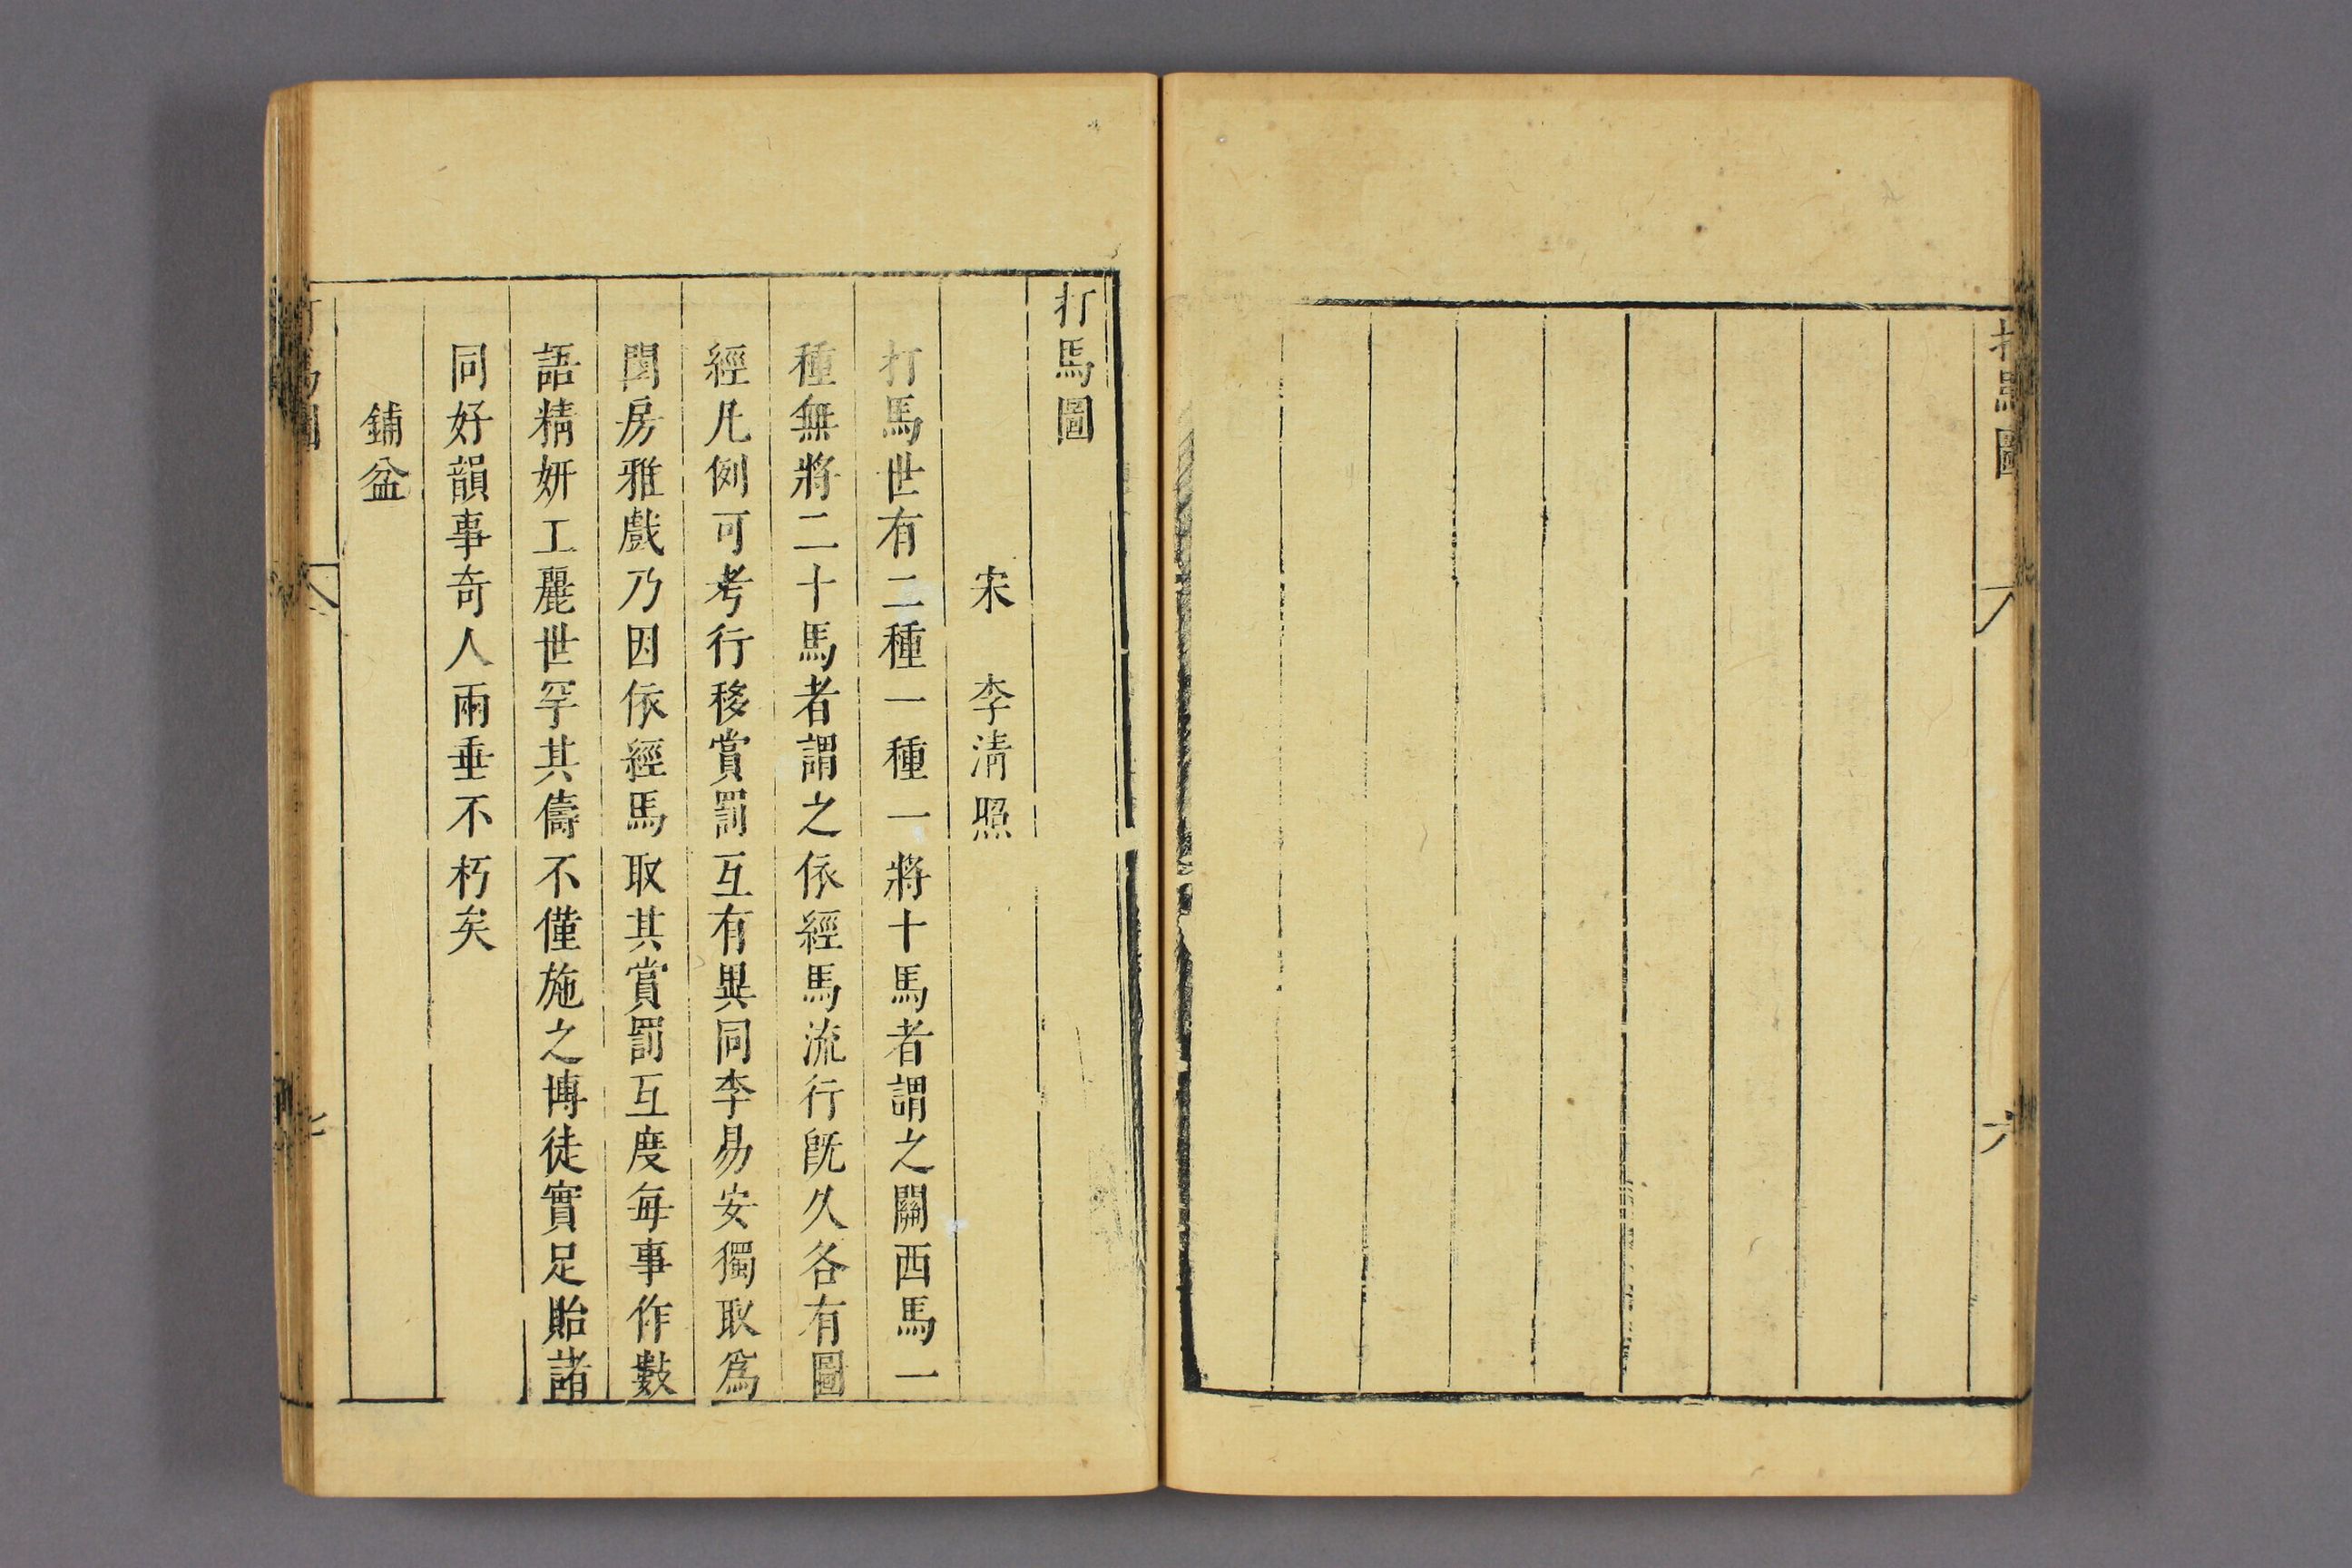 打馬圖
六
打馬圖
宋 李清照
打馬世有二種一種一將十馬者謂之關西馬一
種無將二十馬者謂之依經馬流行旣久各有圖
經凡例可考行移賞罰互有異同李易安獨取爲
閨房雅戲乃因依經馬取其賞罰互度每事作數
語精妍工麗世罕其儔不僅施之博徒實足貽諸
同好韻事奇人兩垂不朽矣
鋪盆
打馬圖
七